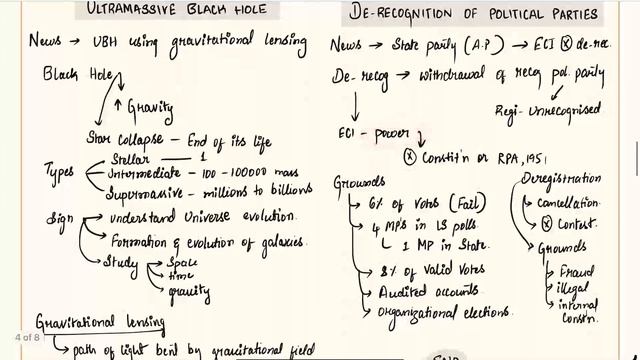 ULTRAMASSIVE BLACK HOLE
News → UBH using gravitational lensing
Black Hole
↑ Gravity
Star collapse - End of its life
Types
Stellar — 1
Intermediate - 100 - 100000 mass
Supermassive - millions to billions
Sign
understand Universe evolution.
Formation & evolution of galaxies.
Study
Space
time
gravity
Gravitational lensing
path of light bent by gravitational field
4 of 8
DE-RECOGNITION OF POLITICAL PARTIES
News → State party (A.P) → ECI ⓧ de-rec.
De-recog → withdrawal of recog pol. party
Regi-Unrecognised
ECI - power
ⓧ Constit'n or RPA, 1951
Grounds
6% of votes (Fail)
4 MP's in LS polls
1 MP in State.
8% of valid Votes
Audited accounts
Organizational elections.
Deregistration
Cancellation
ⓧ Contest.
Grounds
Fraud
illegal
internal
Constn.